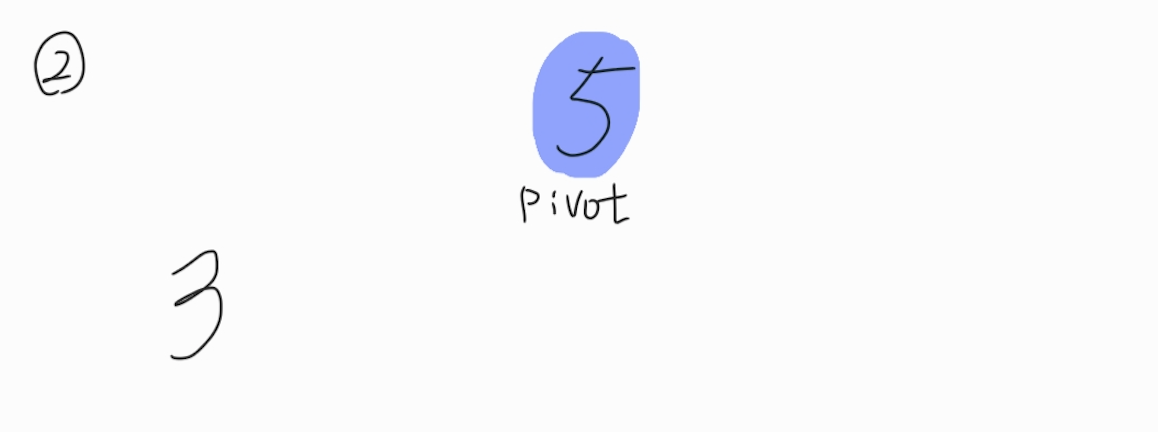 ②
5
pivot
3